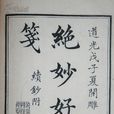 道光戊子夏開雕
絕妙好
箋
續鈔附